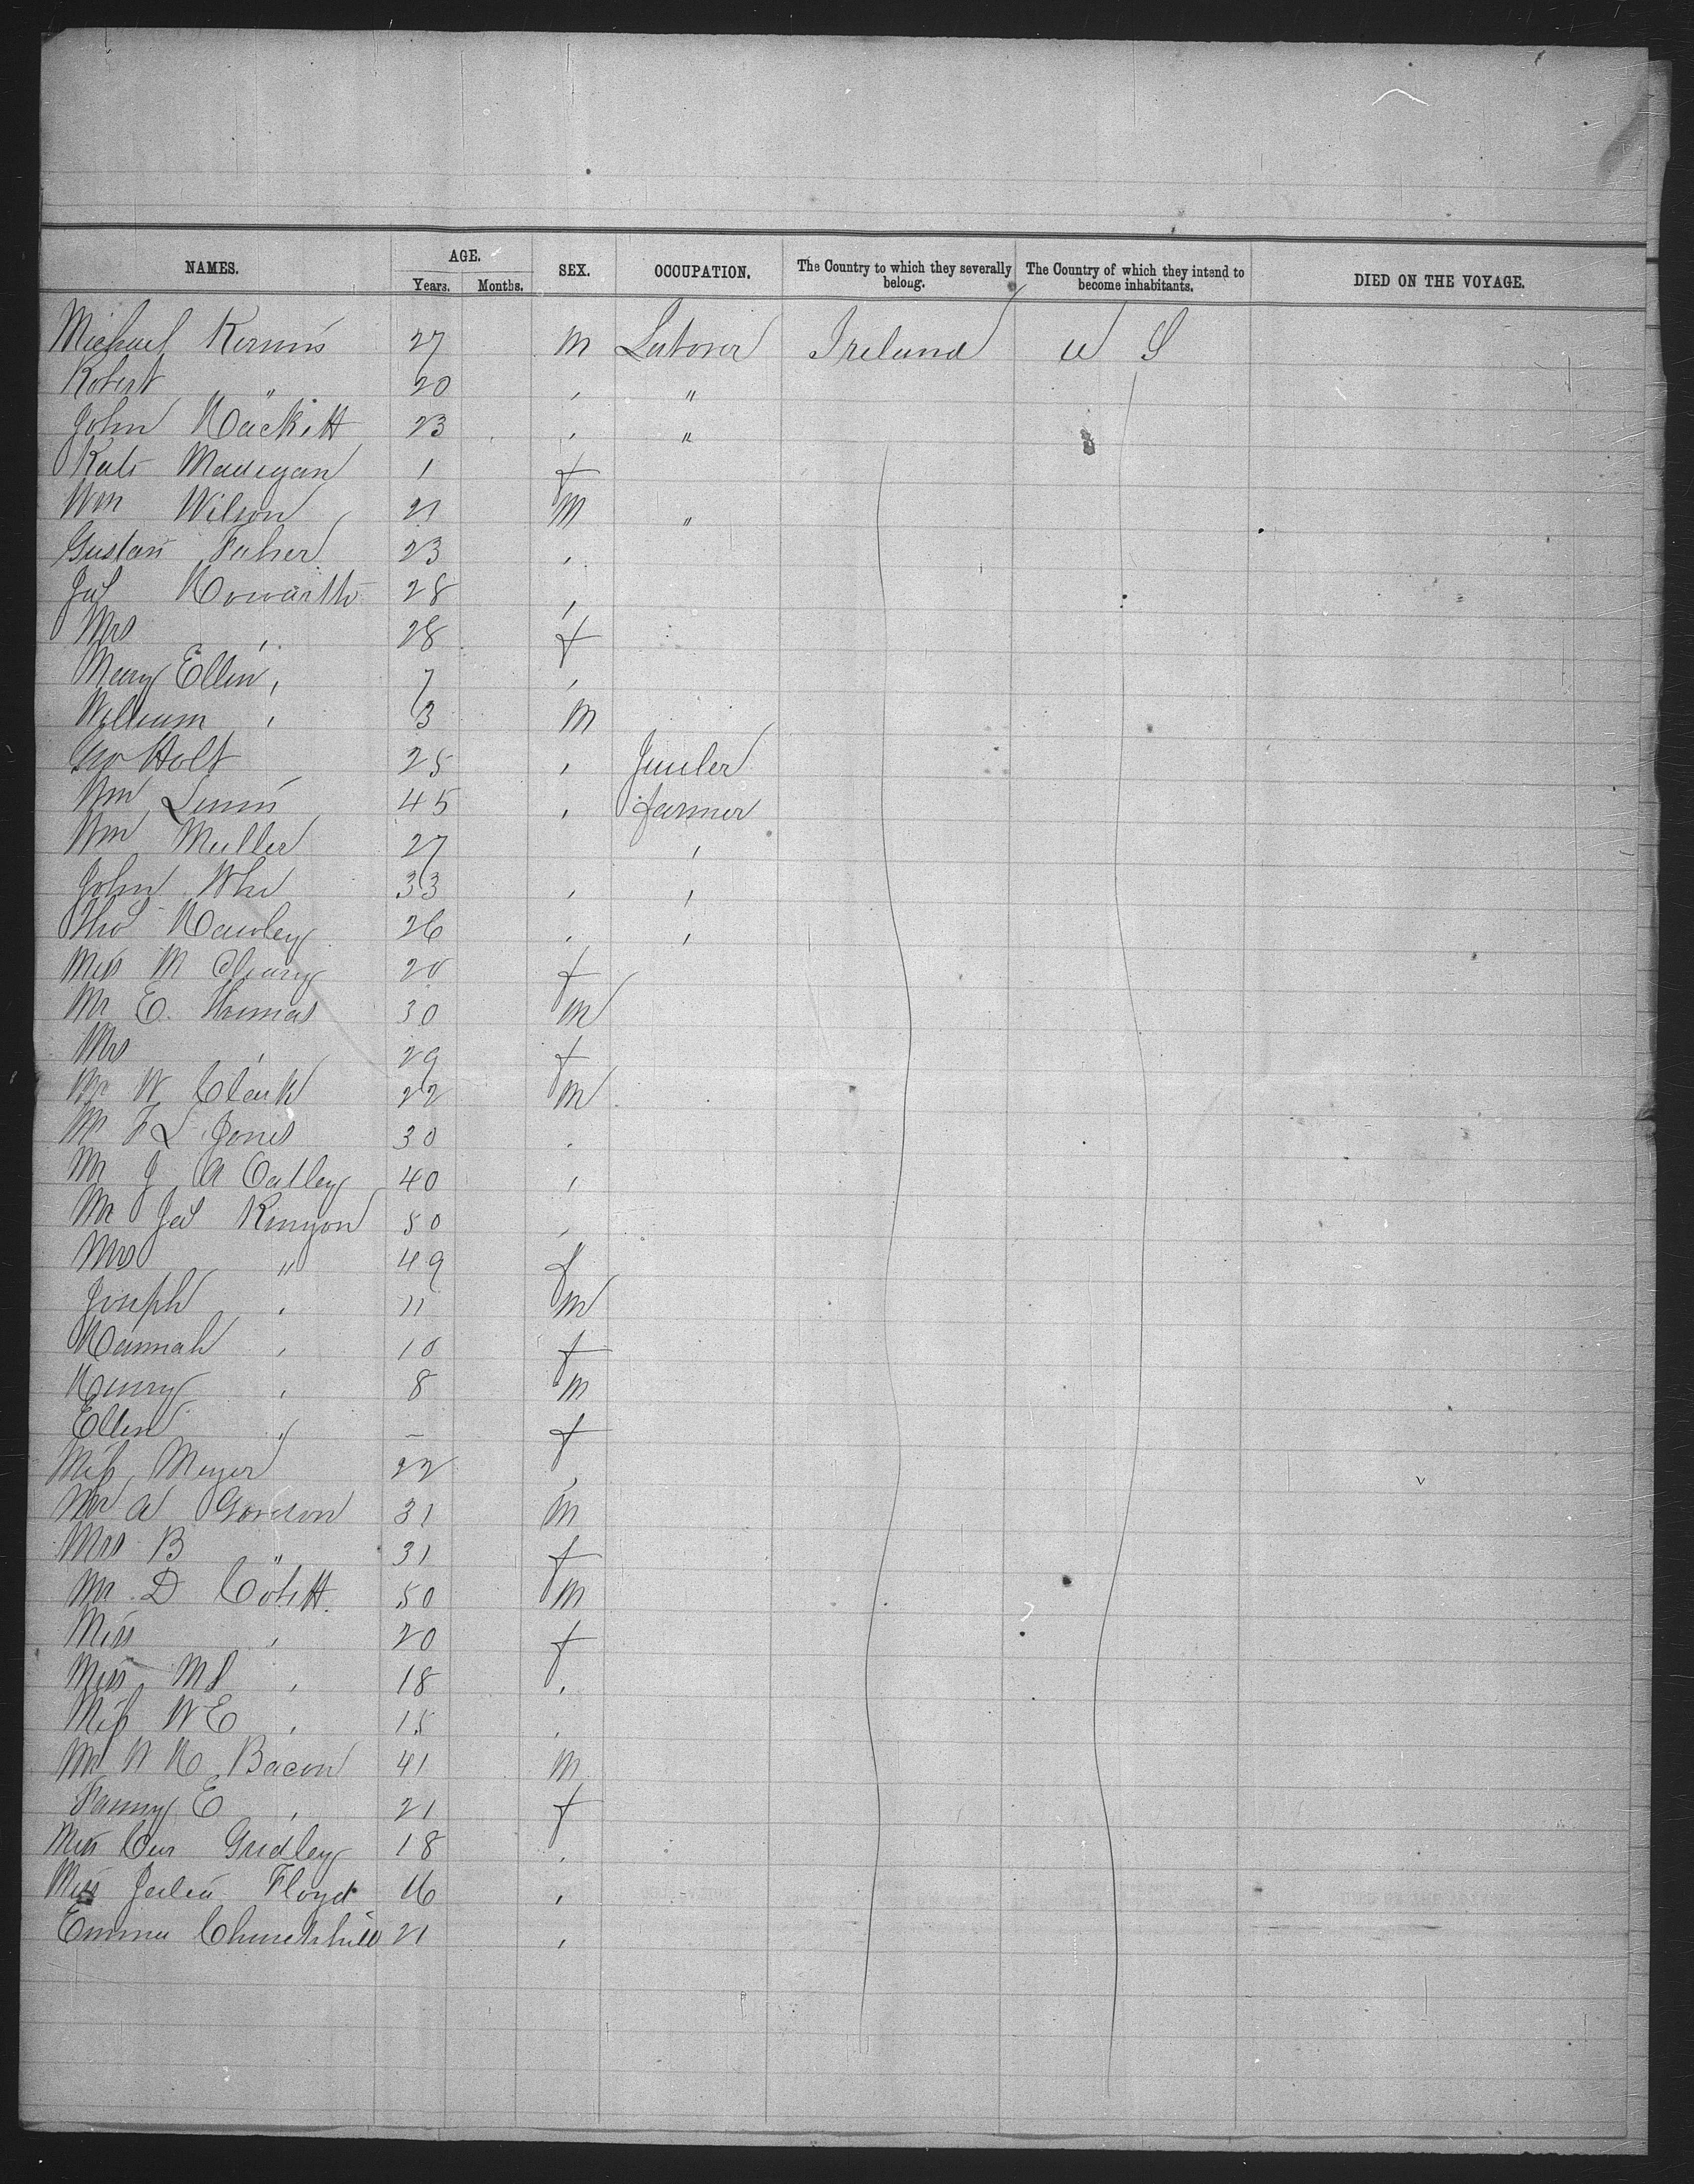 NAMES. AGE. Years. Months. SEX. OCCUPATION. The Country to which they severally belong. The Country of which they intend to become inhabitants. DIED ON THE VOYAGE.
Michael 27 M Laborer Ireland U S
Robert " 20 , "
John Hackett 23 , "
Kate Madigan 1 f
Wm Wilson 21 M "
Gustav 23 ,
Jas Howarth 28 ,
Mrs , 28 f
Mary Ellen , 7 ,
William , 3 M
Geo Holt 25 ,
Wm 45 , farmer
Wm Muller 27 ,
John 33 , ,
Thos Hawley 26 , ,
Miss M Cleary 20 f
Mr E. Thomas 30 M
Mrs , 29 f
Mr W Clark 22 M
Mr F L Jones 30 ,
Mr J A Oatley 40 ,
Mr Jas Kenyon 50 ,
Mrs " 49 f
Joseph , 11 M
Hannah , 10 f
Henry , 8 M
Ellen " – f
Miss Meyer 22 ,
Mr A 31 M
Mrs B " 31 f
Mr D 50 M
Miss , 20 f
Miss M S , 18 ,
Miss W E , 15 ,
Mr Bacon 41 M
Fanny E , 21 f
Miss Gridley 18 ,
Miss Julia Floyd 16 ,
Emma Churchhill 21 ,